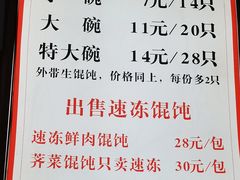 碗 7元/14只
大 碗 11元/20只
特大碗 14元/28只
外带生馄饨,价格同上,每份多2只
出售速冻馄饨
速冻鲜肉馄饨 28元/包
荠菜馄饨只卖速冻 30元/包